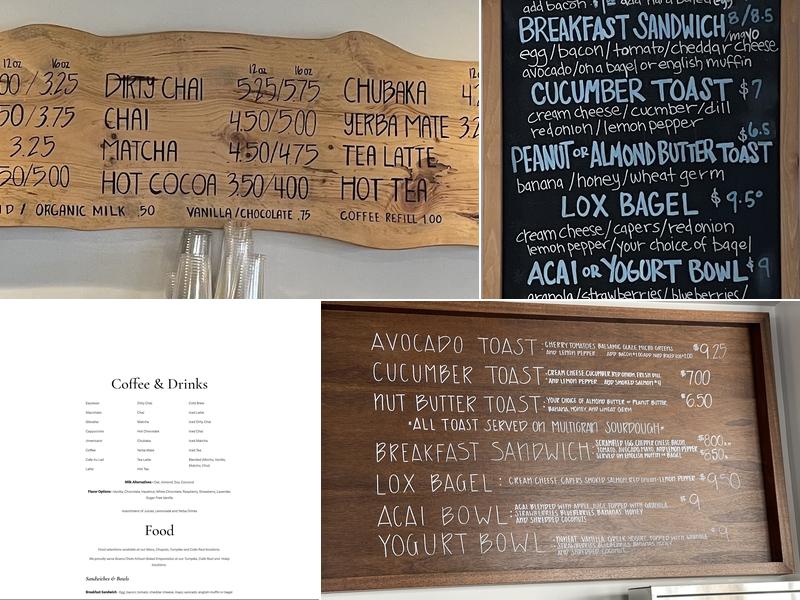 12oz 16oz 12oz 16oz 12oz
00 / 3.25 DIRTY CHAI 5.25/5.75 CHUBAKA
50/3.75 CHAI 4.50/5.00 YERBA MATE
3.25 MATCHA 4.50/4.75 TEA LATTE
50/5.00 HOT COCOA 3.50/4.00 HOT TEA
/ ORGANIC MILK .50 VANILLA/CHOCOLATE .75 COFFEE REFILL 1.00
add bacon
BREAKFAST SANDWICH 8/8.5
egg/bacon/tomato/cheddar cheese
mayo
avocado/on a bagel or english muffin
CUCUMBER TOAST $7
cream cheese/cucmber/dill
red onion/lemon pepper
$6.5
PEANUT OR ALMOND BUTTER TOAST
banana/honey/wheat germ
LOX BAGEL $9.50
cream cheese/capers/red onion
lemon pepper/your choice of bagel
ACAI OR YOGURT BOWL $9
granola/strawberries/blueberries/
Coffee & Drinks
Espresso Dirty Chai Cold Brew
Macchiato Chai Iced Latte
Gibraltar Matcha Iced Dirty Chai
Cappuccino Hot Chocolate Iced Chai
Americano Chubaka Iced Matcha
Coffee Yerba Mate Iced Tea
Cafe Au Lait Tea Latte Blended (Mocha, Vanilla,
Latte Hot Tea Matcha, Chai)
Milk Alternatives - Oat, Almond, Soy, Coconut
Flavor Options - Vanilla, Chocolate, Hazelnut, White Chocolate, Raspberry, Strawberry, Lavender,
Sugar Free Vanilla
Assortment of Juices, Lemonade and Yerba Drinks
Food
Food selections available at our
We proudly serve
locations.
Sandwiches & Bowls
Breakfast Sandwich - Egg, bacon, tomato, cheddar cheese, mayo, avocado, english muffin or bagel
AVOCADO TOAST: CHERRY TOMATOES BALSAMIC GLAZE MICRO GREENS
AND LEMON PEPPER $9.25
CUCUMBER TOAST: CREAM CHEESE CUCUMBER RED ONION FRESH DILL
AND LEMON PEPPER ... ADD SMOKED SALMON $4 $7.00
NUT BUTTER TOAST: YOUR CHOICE OF ALMOND BUTTER OR PEANUT BUTTER,
BANANA, HONEY, AND WHEAT GERM $6.50
*ALL TOAST SERVED ON MULTIGRAIN SOURDOUGH*
BREAKFAST SANDWICH: SCRAMBLED EGG CHEDDER CHEESE BACON
TOMATO, AVOCADO, MAYO, AND LEMON PEPPER
SERVED ON ENGLISH MUFFIN OR BAGEL $8.00 $8.50
LOX BAGEL: CREAM CHEESE CAPERS SMOKED SALMON RED ONION LEMON PEPPER $9.50
ACAI BOWL: ACAI BLENDED WITH APPLE JUICE TOPPED WITH GRANOLA
STRAWBERRIES BLUEBERRIES, BANANAS, HONEY
AND SHREDDED COCONUTS $9
YOGURT BOWL: NONFAT VANILLA GREEK YOGURT TOPPED WITH GRANOLA
STRAWBERRIES BLUEBERRIES BANANAS HONEY
AND SHREDDED COCONUT $9